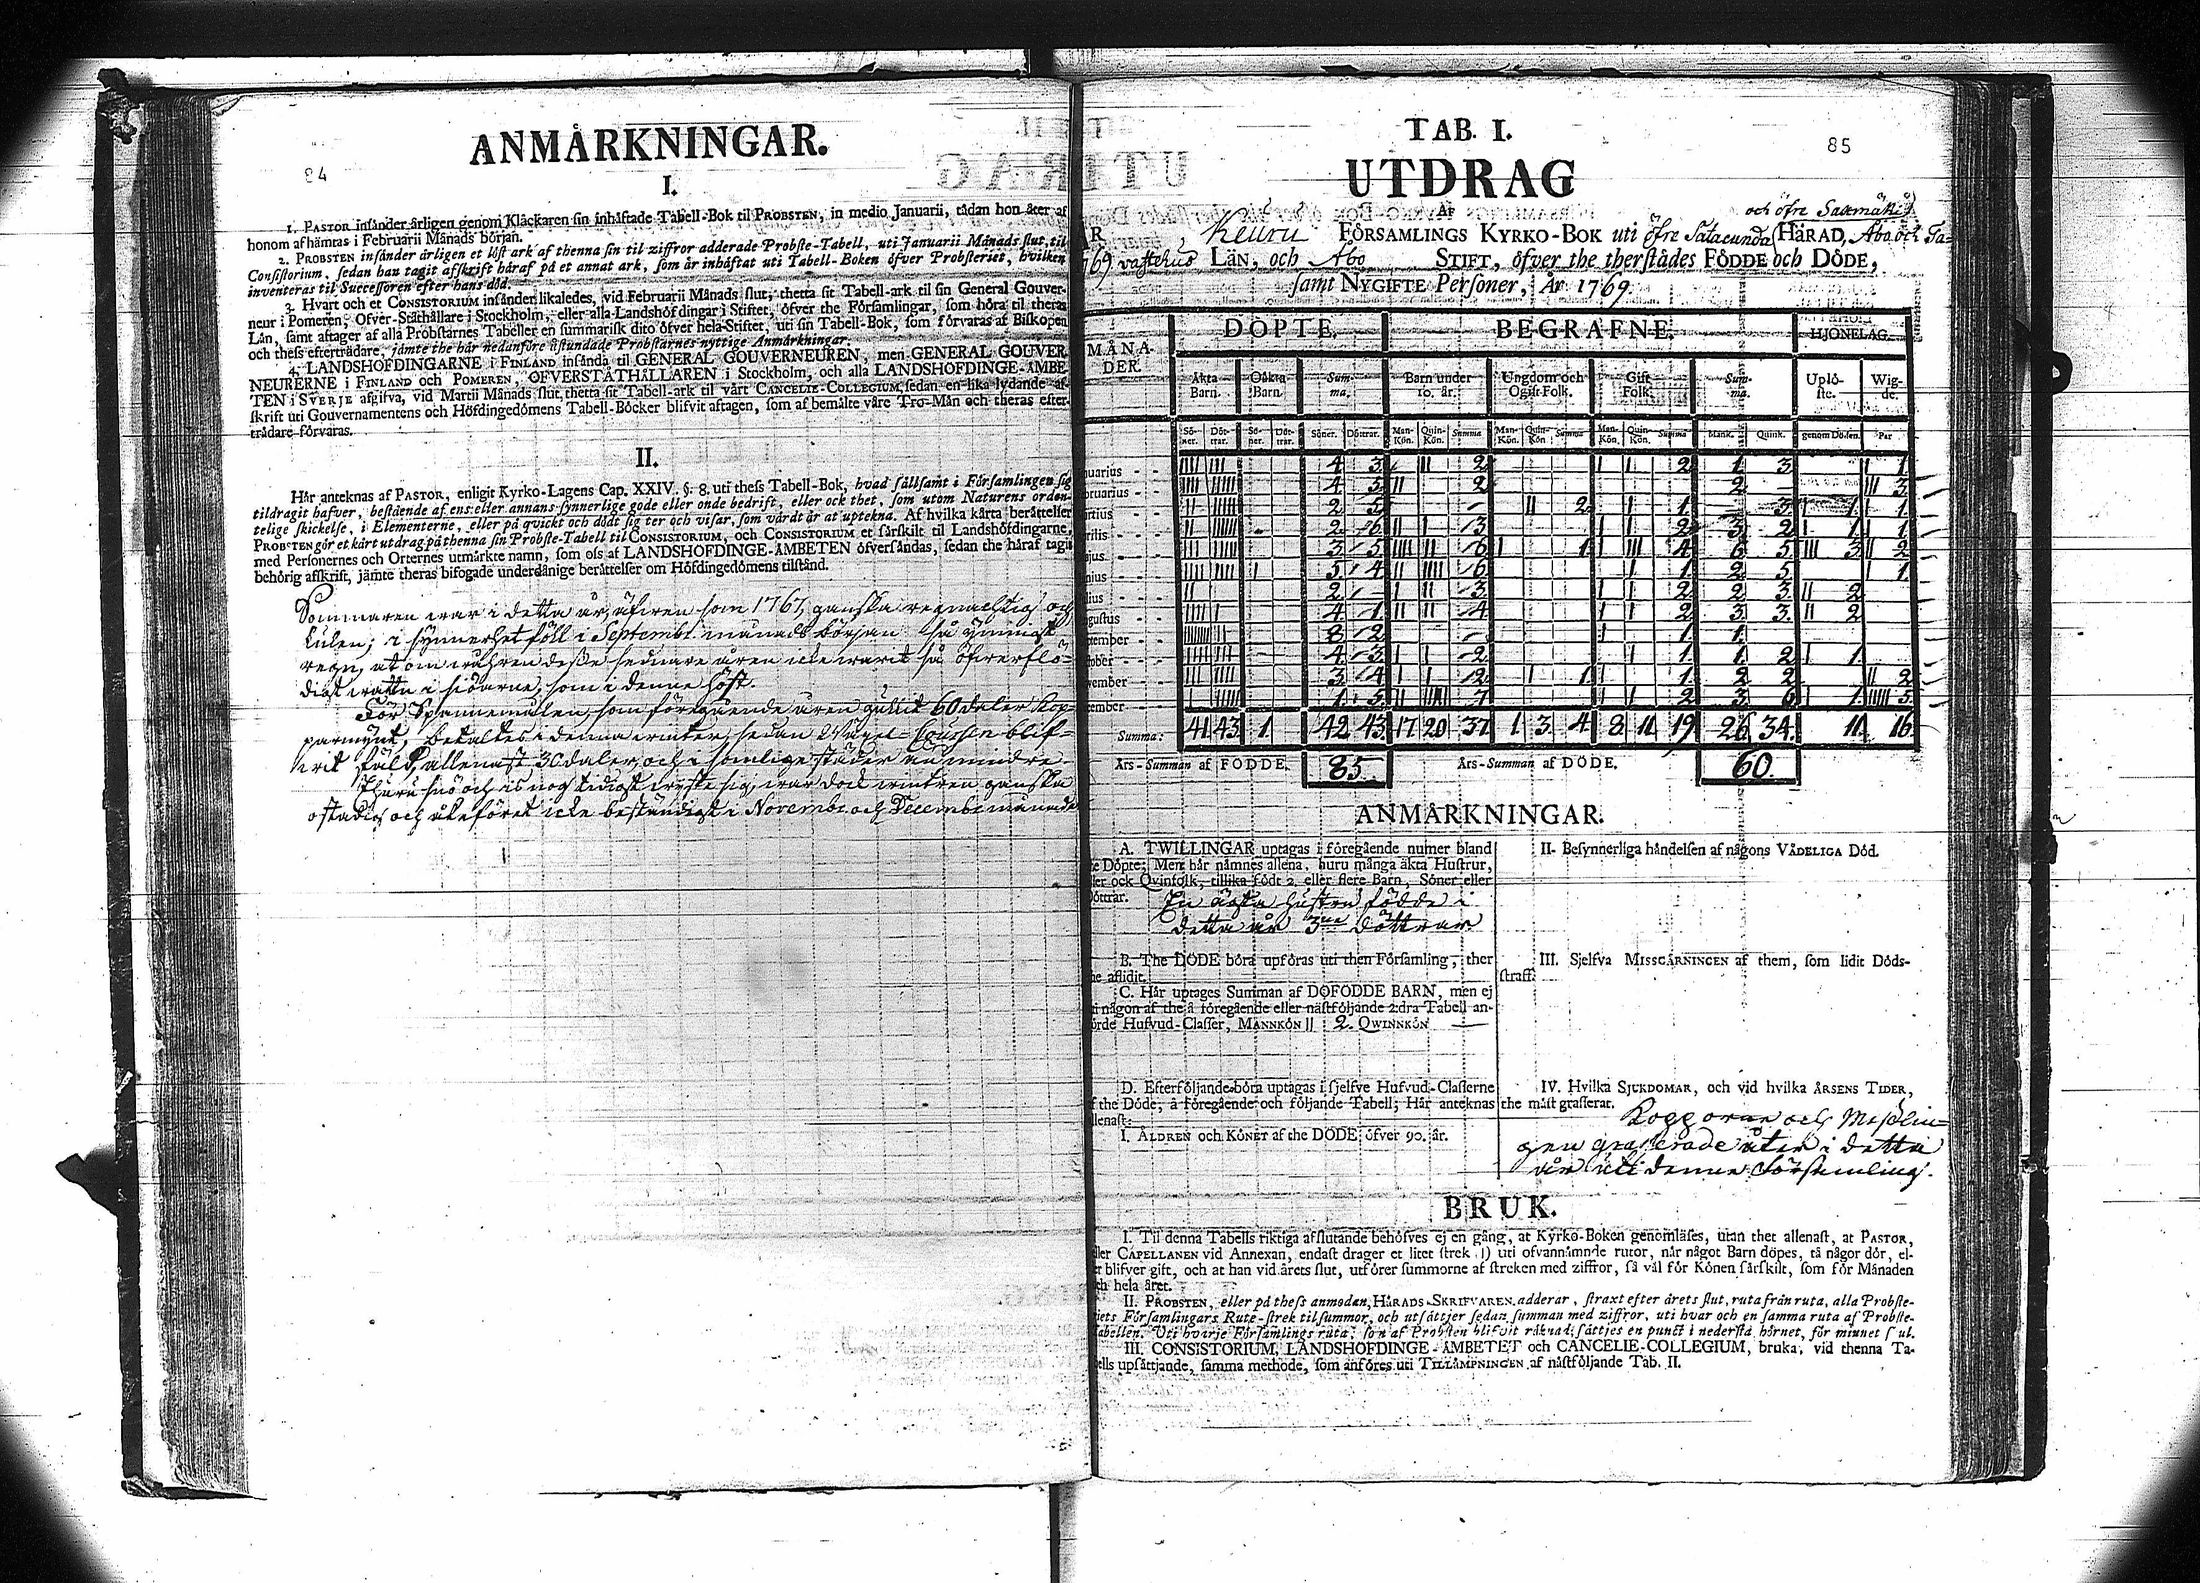 84
ANMÄRKNINGAR.
I.
1. PASTOR insänder ärligen genom Kläckaren sin inhäftade Tabell-Bok til PROBSTEN, in medio Januarii, tådan hon åter af
honom afhämras i Februarii Månads början.
2. PROBSTEN insänder ärligen et löst ark af thenna sin til ziffror adderade Probste-Tabell, uti Januarii Månads slut, til
Consistorium, sedan han tagit afskrift häraf på et annat ark, som är inhäftat uti Tabell-Boken öfver Probsteriet, hvilken
inventeras til Successoren efter hans död.
3. Hvart och et CONSISTORIUM insänder likaledes, vid Februarii Månads slut, thetta sit Tabell-ark til sin General Gouver-
neur i Pomeren, Öfver-Ståthållare i Stockholm, eller alla Landshöfdingar i Stiftet, öfver the Församlingar, som höra til theras
Län, samt aftager af alla Probstarnes Tabeller en summarisk dito öfver hela Stiftet, uti sin Tabell-Bok, som förvaras af Biskopen
och thess efterträdare, jämte the här nedanföre åstundade Probstarnes nyttige Anmärkningar.
4. LANDSHÖFDINGARNE i FINLAND insända til GENERAL GOUVERNEUREN, men GENERAL GOUVER-
NEURERNE i FINLAND och POMEREN, ÖFVERSTÅTHÅLLAREN i Stockholm, och alla LANDSHÖFDINGE-ÄMBE-
TEN i SVERJE afgifva, vid Martii Månads slut, thetta sit Tabell-ark til vårt CANCELIE-COLLEGIUM, sedan en lika lydande af-
skrift uti Gouvernamentens och Höfdingedömens Tabell-Böcker blifvit aftagen, som af bemälte våre Tro-Män och theras efter-
trädare förvaras.
II.
Här anteknas af PASTOR, enligit Kyrko-Lagens Cap. XXIV. §. 8. uti thess Tabell-Bok, hvad sällsamt i Församlingen sig
tildragit hafver, bestående af ens eller annans synnerlige gode eller onde bedrift, eller ock thet, som utom Naturens orden-
telige skickelse, i Elementerne, eller på quickt och dödt sig ter och visar, som värdt är at uptekna. Af hvilka korta berättelser
PROBSTEN gör et kort utdrag på thenna sin Probste-Tabell til CONSISTORIUM, och CONSISTORIUM et särskilt til Landshöfdingarne,
med Personernes och Orternes utmärkte namn, som oss af LANDSHÖFDINGE-ÄMBETEN öfversändas, sedan the häraf tagit
behörig afskrift, jämte theras bifogade underdånige berättelser om Höfdingedömens tilstånd.
Sommaren war i detta år, äfwen som 1767, ganska regnachtig och
kulen; i synnerhet föll i Septembr. månads början så ymnigt
regn, at om wåhren desse sednare åren icke warit så öfwerflö-
digt watn i siöarne, som i denne höst.
För Spannemålen, som föregående åren gullit 60 daler Kop-
parmynt, betaltes i denna winter, sedan Wäxel-Coursen blif-
wit fäld, allenast 30 daler, och i somlige städer än mindre.
Ehuru snö och is nog tidigt wiste sig, war dock wintren ganska
ostadig och åkeföret icke beständigt i Novembr. och Decembr. månader
85
TAB. I.
UTDRAG
AF
och öfre Saxmäki
Keuru FÖRSAMLINGS KYRKO-BOK uti öfre Satacunda HÄRAD, Åbo och Ta-
vastehus LÄN, och Åbo STIFT, öfver the therstädes FÖDDE och DÖDE,
samt NYGIFTE Personer, År 1769
MÅNA-DER. DÖPTE. BEGRAFNE. HJONELAG.
Äkta Barn. Oäkta Barn. Sum-ma. Barn under 10. år. Ungdom och Ogift Folk. Gift Folk. Sum-ma. Uplö-ste. Wig-de.
Sö-ner. Döt-trar. Sö-ner. Döt-trar. Söner. Döttrar. Man-Kön. Quin-Kön. Summa Man-Kön. Quin-Kön Summa Man-Kön. Quin-Kön. Summa Mank. Quink. genom Döden. Par
nuarius - - 4 3 2 2 1 3 1
bruarius - - 4 5 2 2 3
rtius - - 2 5 2 1 3 1 1
rilis - - 2 6 3 2 3 2 1 1
jus - - 3 5 6 1 4 6 5 3 2
nius - - 5 4 6 1 2 5 1
lius - - 2 3 2 2 3 2
gustus - - 4 1 4 2 3 3 2
ptember - - 8 2 1 1
tober - - 4 3 2 1 1 2 1
vember - - 3 4 2 1 1 2 2 2
cember - - 1 5 7 2 3 6 1 5
Summa: 41 43 1 42 43 17 20 37 1 3 4 8 11 19 26 34 11 16
Års-Summan af FÖDDE. 85. Års-Summan af DÖDE. 60.
ANMÄRKNINGAR.
A. TWILLINGAR uptagas i föregående numer bland
e Döpte; Men här nämnes allena, huru många äkta Hustrur,
ler ock Qvinfolk, tillika födt 2. eller flere Barn, Söner eller
öttrar. En ägta hustru födde i
detta år 3ne döttrar
B. The DÖDE böra upföras uti then Församling, ther
he aflidit.
C. Här uptages Summan af DÖFÖDDE BARN, men ej
ti någon af the å föregående eller nästföljande 2:dra Tabell an-
örde Hufvud-Classer, MANNKÖN || 2. QWINNKÖN —
D. Efterföljande böra uptagas i sjelfve Hufvud-Classerne
f the Döde, å föregående och följande Tabell; Här anteknas
llenast:
I. ÅLDREN och KÖNET af the DÖDE öfver 90. år.
II. Besynnerliga händelsen af någons VÅDELIGA Död.
III. Sjelfva MISSGÄRNINGEN af them, som lidit Döds-
straff.
IV. Hvilka SJUKDOMAR, och vid hvilka ÅRSENS TIDER,
the mäst grasserat. Kopporne och Messlin-
gen grasserade åter i detta
år uti denne Församling.
BRUK.
I. Til denna Tabells riktiga afslutande behöfves ej en gång, at Kyrko-Boken genomläses, utan thet allenast, at PASTOR,
ller CAPELLANEN vid Annexan, endast drager et litet strek |) uti ofvannämnde rutor, när något Barn döpes, tå någor dör, el-
er blifver gift, och at han vid årets slut, utförer summorne af streken med ziffror, så väl för Könen särskilt, som för Månaden
ch hela året.
II. PROBSTEN, eller på thess anmodan, HÄRADS-SKRIFVAREN adderar, straxt efter årets slut, ruta från ruta, alla Probste-
riets Församlingars Rute-strek til summor, och utsättjer sedan summan med ziffror, uti hvar och en samma ruta af Probste-
Tabellen. Uti hvarje Församlings ruta, som af Probsten blifvit räknad, sättjes en punct i nedersta hörnet, för minnet sul.
III. CONSISTORIUM, LANDSHÖFDINGE-ÄMBETET och CANCELIE-COLLEGIUM, bruka, vid thenna Ta-
bells upsättjande, samma methode, som anföres uti TILLÄMPNINGEN af nästföljande Tab. II.